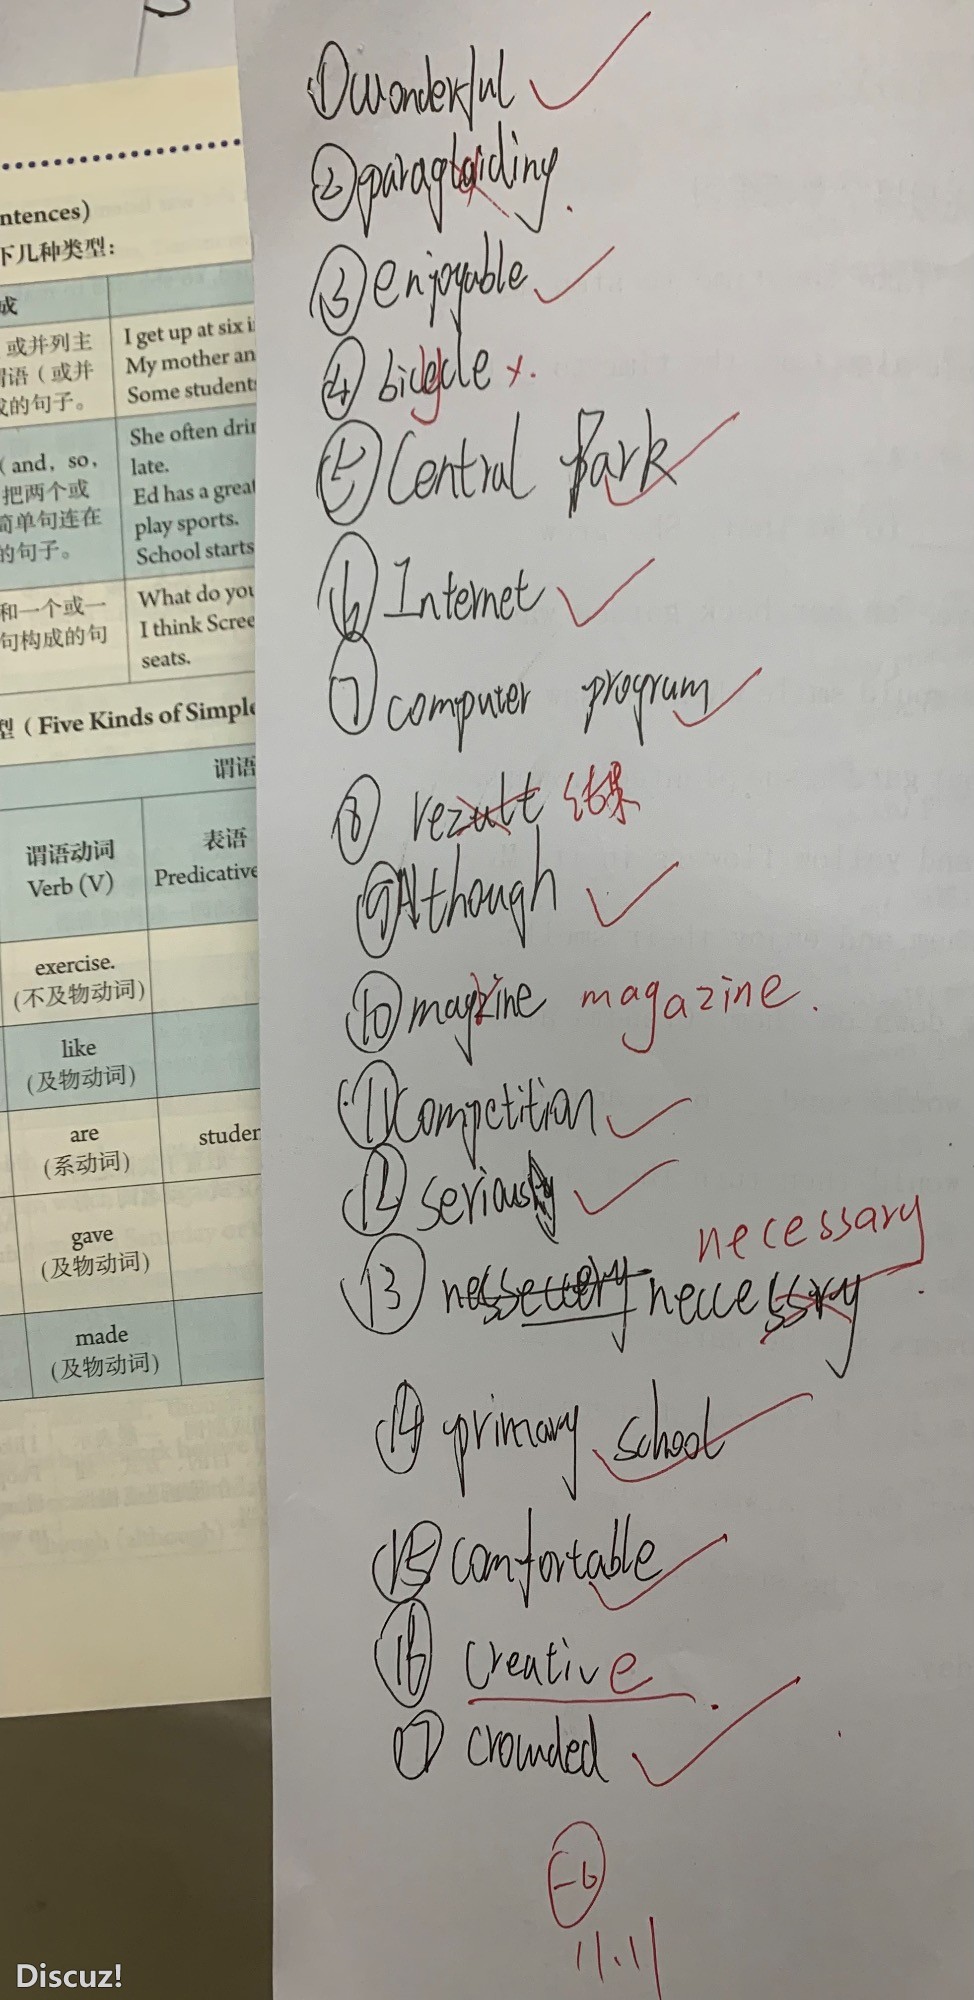 ntences)
下几种类型：
成
或并列主
谓语（或并
成的句子。
I get up at six i
My mother an
Some student
（and，so，
把两个或
简单句连在
的句子。
She often drin
late.
Ed has a great
play sports.
School starts
和一个或一
句构成的句
What do you
I think Scree
seats.
型（Five Kinds of Simple
谓语
谓语动词
Verb (V)
表语
Predicative
exercise.
(不及物动词)
like
(及物动词)
are
(系动词)
studen
gave
(及物动词)
made
(及物动词)
① wonderful
② paraglaiding
③ enjoyable
④ bicycle
⑤ Central Park
⑥ Internet
⑦ computer program
⑧ rezult 结果
⑨ Although
⑩ magzine magazine.
⑪ Competition
⑫ seriously
necessary
⑬ neccessry
⑭ primary school
⑮ comfortable
⑯ creative
⑰ crowded
-6
11.11
Discuz!